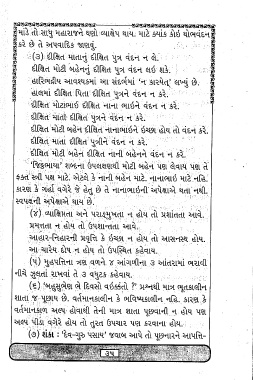 માટે તો સાધુ મહારાજને ઘણો વ્યાક્ષેપ થાય. માટે ક્યાંક કોઈ થોભવંદન
કરે છે તે અપવાદિક જાણવું.
(૩) દીક્ષિત માતાનું દીક્ષિત પુત્ર વંદન ન લે.
દીક્ષિત મોટી બહેનનું દીક્ષિત પુત્ર વંદન લઈ શકે.
હારિભદ્રીય આવશ્યકમાં આ સંદર્ભમાં 'ન કારયેત્' લખ્યું છે.
હાલમાં દીક્ષિત પિતા દીક્ષિત પુત્રને વંદન ન કરે.
દીક્ષિત મોટાભાઈ દીક્ષિત નાના ભાઈને વંદન ન કરે.
દીક્ષિત માતા દીક્ષિત પુત્રને વંદન ન કરે.
દીક્ષિત મોટી બહેન દીક્ષિત નાનાભાઈને ઈચ્છા હોય તો વંદન કરે.
દીક્ષિત માતા દીક્ષિત પુત્રીને વંદન ન કરે.
દીક્ષિત મોટી બહેન દીક્ષિત નાની બહેનને વંદન ન કરે.
શબ્દના ઉપલક્ષણથી મોટી બહેન પણ લેવાય પણ તે
ફક્ત સ્ત્રી પક્ષ માટે. એટલે કે નાની બહેન માટે. નાનાભાઈ માટે નહિ.
કારણ કે ગર્હા વગેરે જે હેતુ છે તે નાનાભાઈની અપેક્ષાએ થતા નથી.
સ્વપક્ષની અપેક્ષાએ થાય છે.
(૪) વ્યાક્ષિપ્તતા અને પરાઙ્મુખતા ન હોય તો પ્રશાંતતા આવે.
પ્રમત્તતા ન હોય તો ઉપશાન્તતા આવે.
આહાર-નિહારની પ્રવૃત્તિ કે ઈચ્છા ન હોય તો આસનસ્થ હોય.
આ ચારેય દોષ ન હોય તો ઉપસ્થિત કહેવાય.
(૫) મુહપત્તિના ત્રણ વળને ૪ આંગળીના ૩ આંતરામાં ભરાવી
નીચે ઝુલતાં રાખવાં તે ૩ વધુટક કહેવાય.
(૬) 'બહુસુભેણ ભે દિવસો વઈક્કંતો ?' પ્રશ્નથી માત્ર ભૂતકાલીન
શાતા જ પૂછાય છે. વર્તમાનકાલીન કે ભવિષ્યકાલીન નહિ. કારણ કે
વર્તમાનકાળ અલ્પ હોવાથી તેની માત્ર શાતા પૂછવાની ન હોય પણ
અલ્પ પીડા વગેરે હોય તો તુરત ઉપચાર પણ કરવાના હોય.
(૭) શંકા : 'દેવ-ગુરુ પસાય' જવાબ આપે તો પૂછનારને આપત્તિ-
૩૫